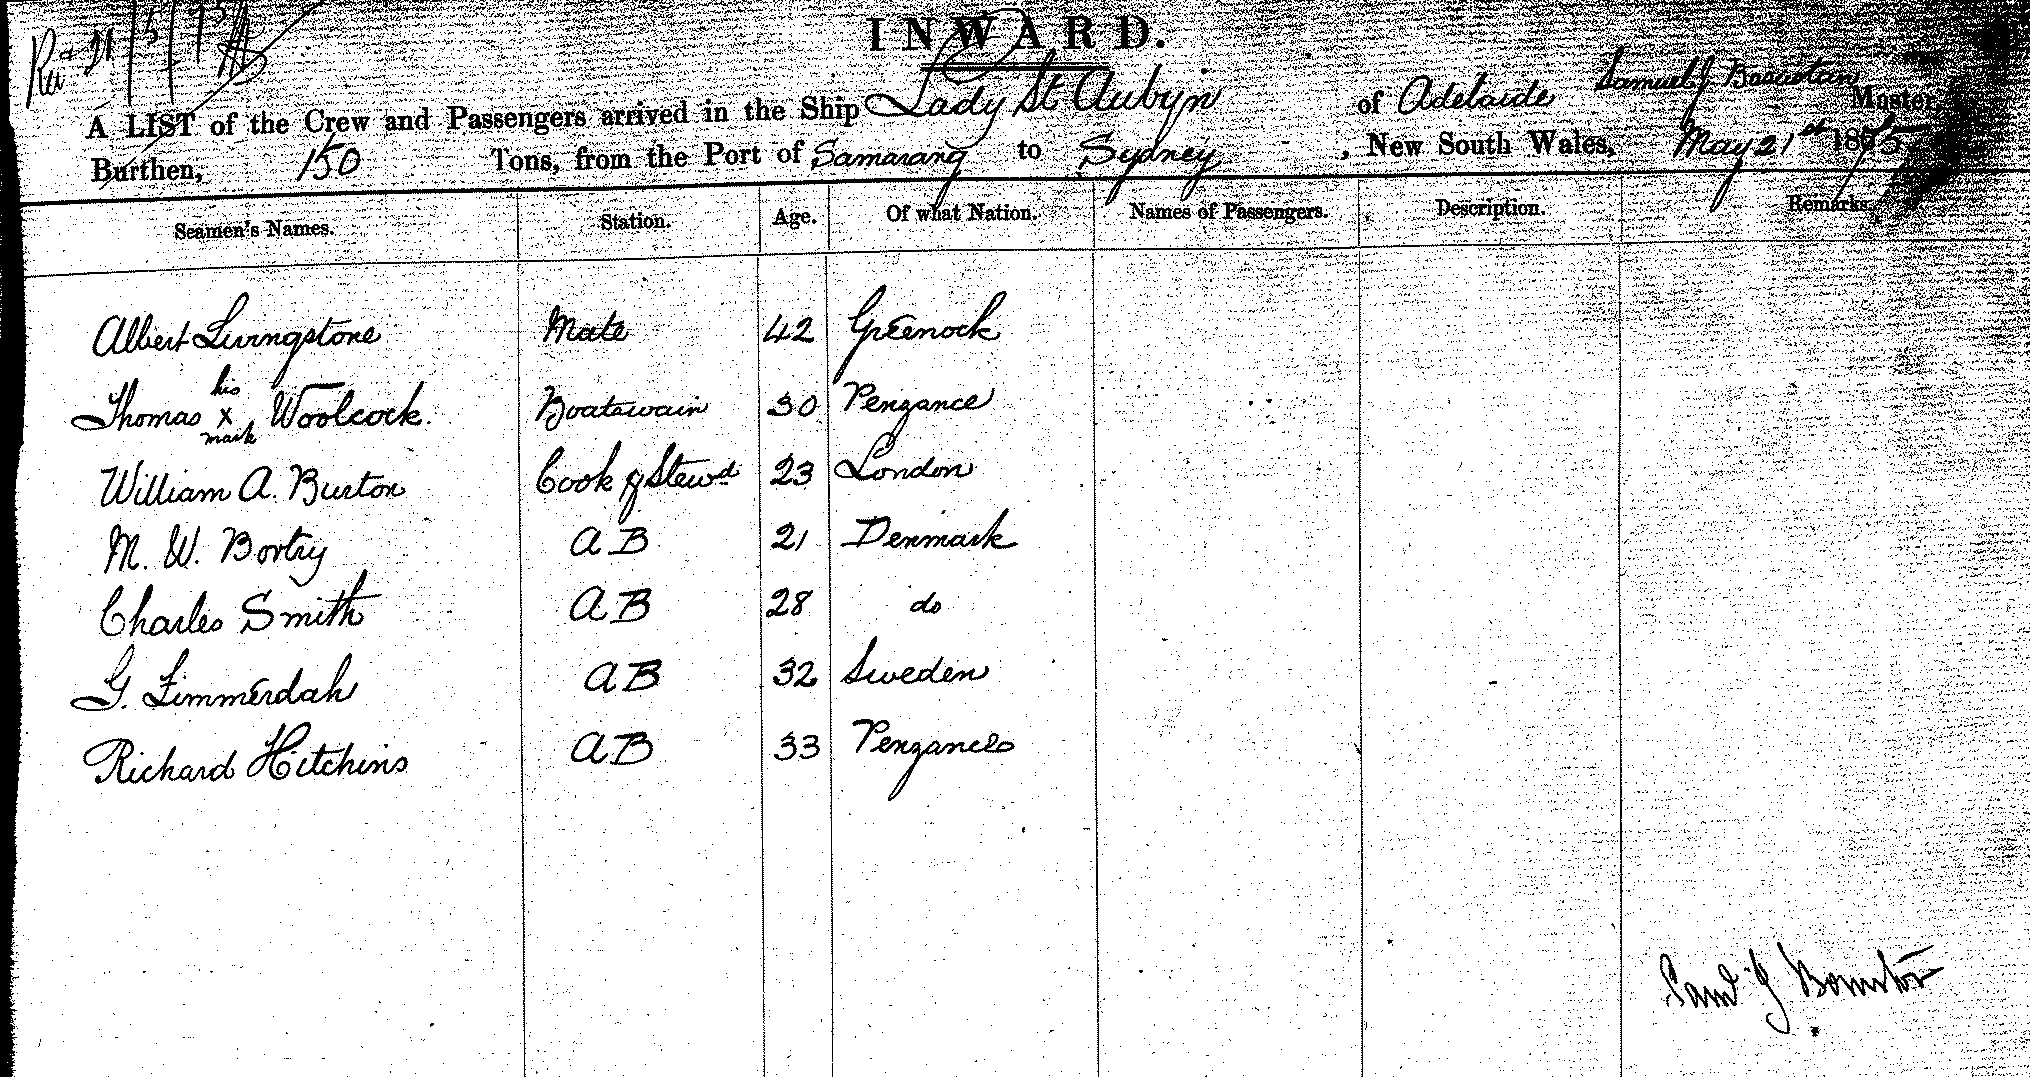 21/5/75
INWARD.
A LIST of the Crew and Passengers arrived in the Ship Lady St Aubyn of Adelaide Samuel J Master,
Burthen, 150 Tons, from the Port of Samarang to Sydney, New South Wales, May 21st 1875
Seamen's Names. Station. Age. Of what Nation. Names of Passengers. Description. Remarks.
Albert Livingstone Mate 42 Greenock
his
Thomas x Woolcock. Boatswain 30 Penzance
mark
William A. Burton Cook & Stewd 23 London
M. W. Bortry AB 21 Denmark
Charles Smith AB 28 do
G. Zimmerdahl AB 32 Sweden
Richard Hitchins AB 33 Penzance
Saml J